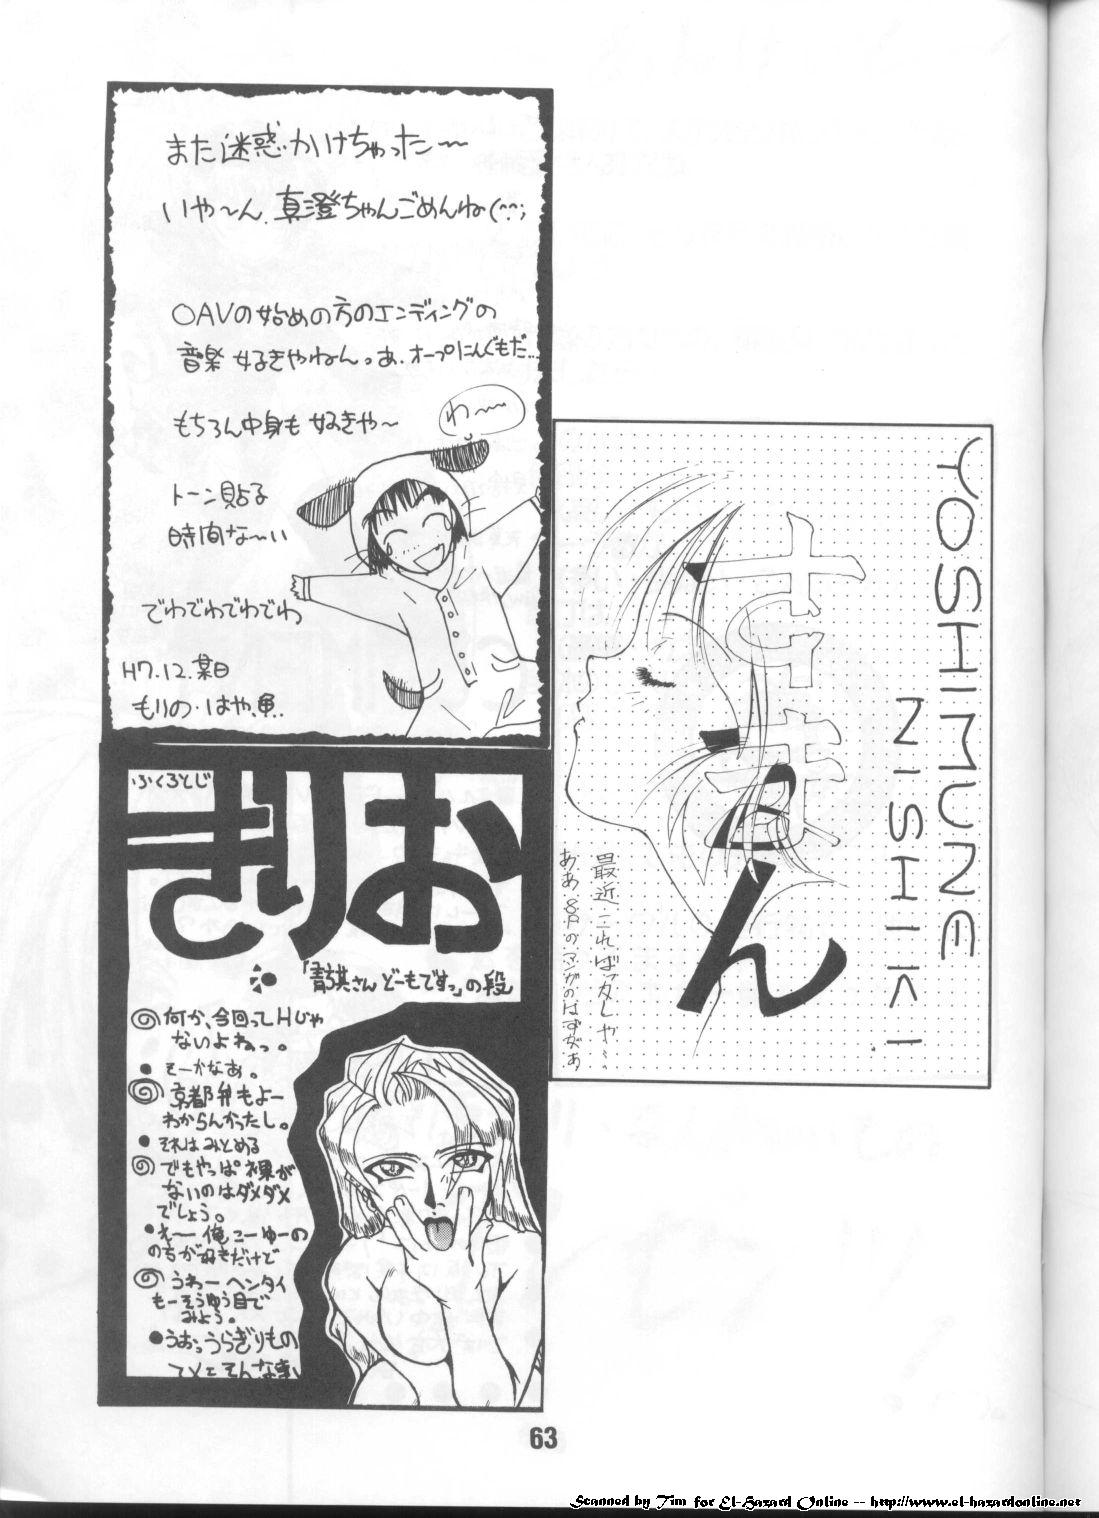 また迷惑かけちゃった〜
いや〜ん、真澄ちゃんごめんね(^^;
OAVの始めの方のエンディングの
音楽好きやねん。あ、オープニんぐもだ…
もちろん中身も好きや〜
わ〜
トーン貼る
時間な〜い
でわでわでわでわ
H7.12.某日
もりの・はや、魚..
YOSHIMUNE
NISHIKI
すまん
最近こればッカしや…。
ああ、8Pのマンガのはずがぁ
ふくろとじ
きりお
「青祺さんどーもですっ」の段
何か、今回ってHじゃ
ないよねっ。
そーかなあ。
京都弁もよー
わからんかったし。
それはみとめる
でもやっぱ裸が
ないのはダメダメ
でしょう。
え〜俺こーゆーの
のちが好きだけど
うわーヘンタイ
もーそうゆう目で
みよう。
うおっうらぎりもの
てメエそんな事、
63
Scanned by Tim for El-Hazard Online -- http://www.el-hazardonline.net